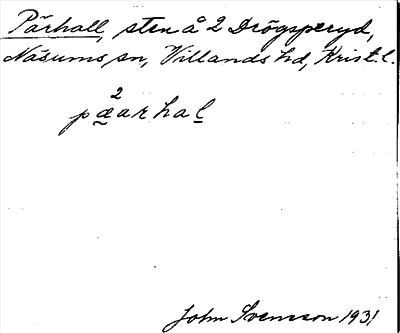 Pärhall, sten å 2 Drögsperyd,
Näsums sn, Villands hd, Krist. l.
2
pæarhal
John Svensson 1931